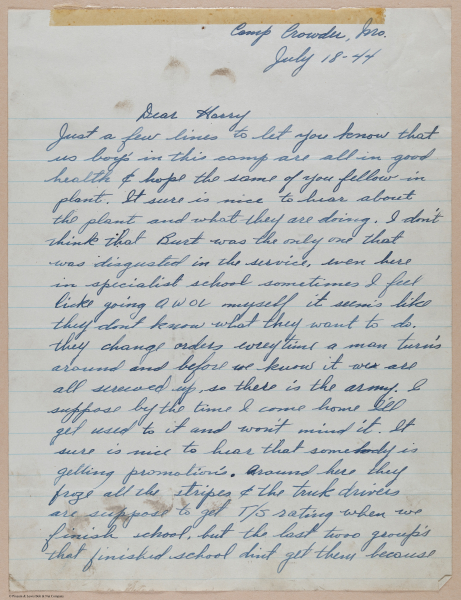 Camp Crowder, Mo.
July 18-44
Dear Harry
Just a few lines to let you know that
us boys in this camp are all in good
health & hope the same of you fellow in
plant. It sure is nice to hear about
the plant and what they are doing. I don't
think that Burt was the only one that
was disgusted in the service, even here
in specialist school sometimes I feel
like going AWOL myself it seem's like
they don't know what they want to do.
they change orders everytime a man turn's
around and before we know it we are
all screwed up, so there is the army. I
suppose by the time I come home I'll
get used to it and won't mind it. It
sure is nice to hear that somebody is
getting promotion's. Around here they
froze all the stripes & the truk drivers
are suppose to get T/5 rating when we
finish school, but the last two group's
that finished school dint get them because